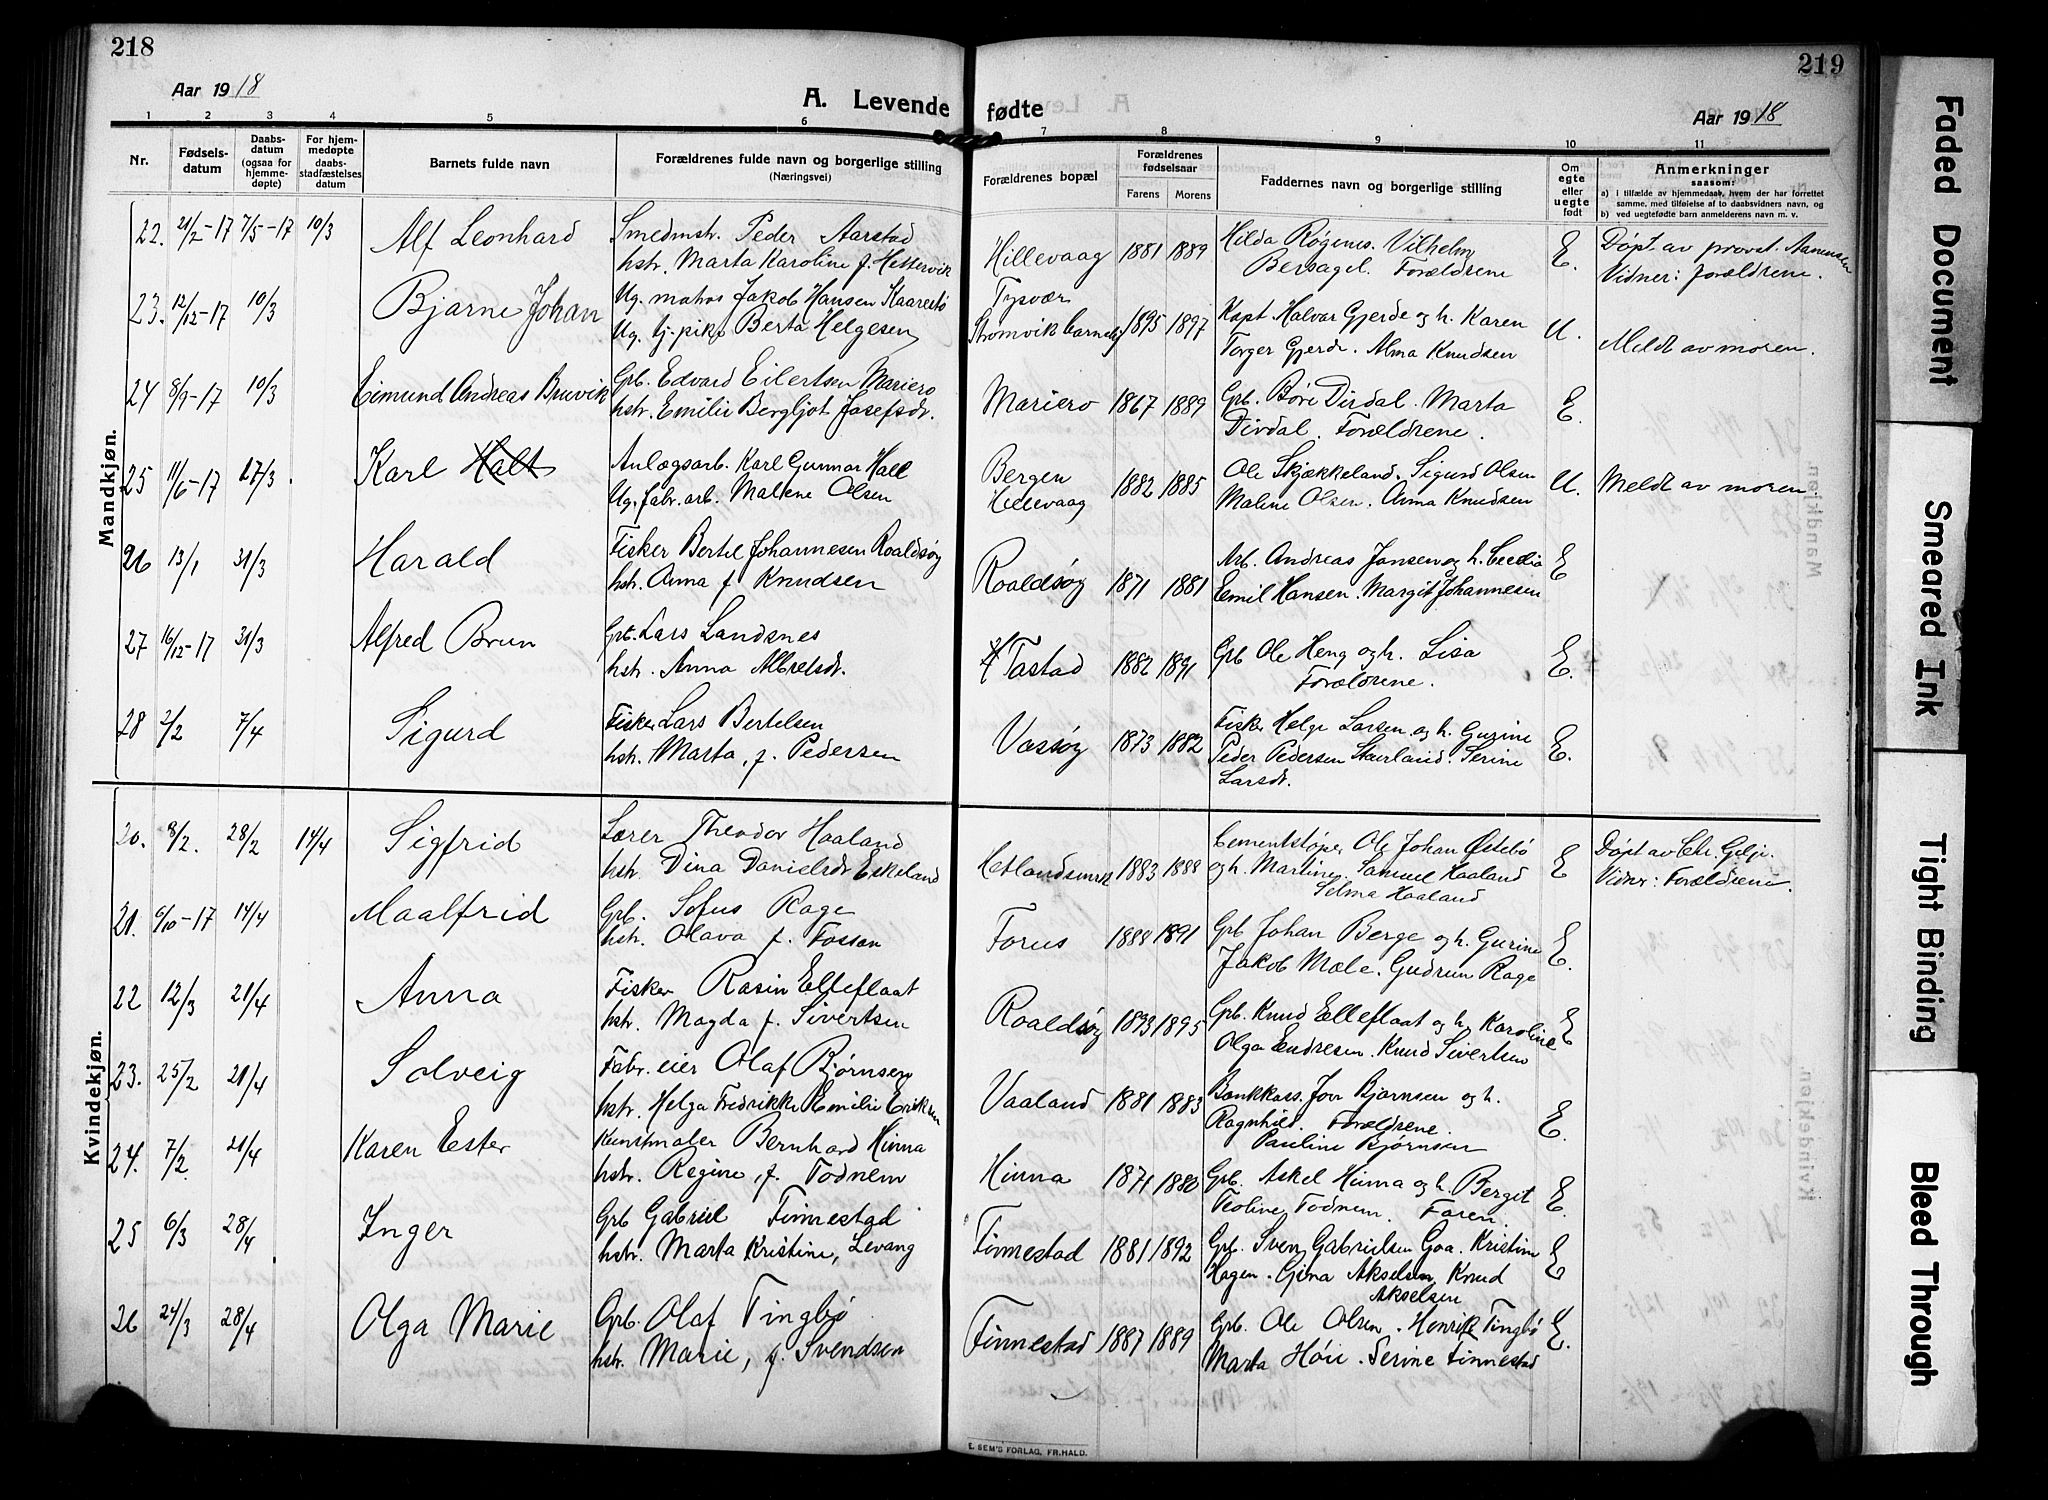 218
219
Aar 1918
A. Levende fødte
Aar 1918
1 2 3 4 5 6 7 8 9 10 11
Nr.
Fødsels-
datum
Daabs-
datum
(ogsaa for
hjemme-
døpte)
For hjem-
medøpte
daabs-
stadfæstelses
datum
Barnets fulde navn
Forældrenes fulde navn og borgerlige stilling
(Næringsvei)
Forældrenes bopæl
Forældrenes
fødselsaar
Farens Morens
Faddernes navn og borgerlige stilling
Om
egte
eller
uegte
født
Anmerkninger
saasom:
a) i tilfælde av hjemmedaab, hvem der har forrettet
samme, med tilføielse af to daabsvidners navn, og
b) ved uegtefødte barn anmelderens navn m. v.
Mandkjøn.
22. 21/2-17 7/5-17 10/3 Alf Leonhard Smedmstr. Peder Aarstad Hillevaag 1881 1889 Hilda Røgenes. Vilhelm E. Døpt av provst Aanensen
hstr. Marta Karoline f. Hettervik Bersagel. Forældrene Vidner: forældrene.
23. 12/12-17 10/3 Bjarne Johan Ug. matros Jakob Hansen Kaarestø Tysvær 1895 1897 Kapt Halvar Gjerde og h. Karen U. Meldt av moren.
Ug. tj. pike Berta Helgesen Strømvik Torger Gjerde. Alma Knudsen
24 8/9-17 10/3 Eimund Andreas Bruvik Grb. Edvard Eilertsen Mariero Mariero 1867 1889 Grb. Børe Dirdal. Marta E.
hstr. Emilie Bergljot Josefsdr. Dirdal. Forældrene.
25 11/6-17 17/3. Karl Halt Anlægsarb. Karl Gunnar Hall Bergen 1882 1885 Ole Skjækkeland. Sigurd Olsen U. Meldt av moren.
Ug. fabr. arb. Malene Olsen Hillevaag Malene Olsen. Anna Knudsen
26 13/1 31/3 Harald Fisker Bertel Johannesen Roaldsøy Roaldsøy 1871 1881 Arb. Andreas Jansen og h. Cecilia E
hstr. Anna f. Knudsen Emil Hansen. Margit Johannesen
27 16/12-17 31/3 Alfred Brun Grb. Lars Landsnes Tastad 1882 1891 Grb Ole Heng og h. Lisa E.
hstr. Anna Albretsdr. Forældrene.
28 2/2 7/4 Sigurd Fisker Lars Bertelsen Vassøy 1873 1882 Fisker Helge Larsen og h. Gurine E.
hstr. Marta, f. Pedersen Peder Pedersen. Serine
Larsdr.
Kvindekjøn.
20. 8/2. 28/2 14/4 Sigfrid Lærer Theodor Haaland Hetlandsmrk 1883 1888 Cementstøper Ole Johan Østebø E Døpt av Chr. Gilje.
hstr. Dina Danielsdr Eskeland og h. Martine. Samuel Haaland Vidner: Forældrene.
Selma Haaland
21. 6/10-17 14/4 Maalfrid Grb. Sofus Rage Forus 1888 1891 Grb Johan Berge og h. Gurine E.
hstr. Olava f. Fossan Jakob Mæle. Gudrun Rage
22 12/3 21/4 Anna Fisker Rasin Elleflaat Roaldsøy 1893 1895 Grb. Knud Elleflaat og h. Karoline E
hstr. Magda f. Sivertsen Olga Endresen. Knud Sivertsen
23. 25/2 21/4 Solveig Fabr. eier Olaf Bjørnsen Vaaland 1881 1883 Bankkass. Jon Bjørnsen og h. E.
hstr. Helga Fredrikke Emilie Eriksen Ragnhild. Forældrene.
Pauline Bjørnsen
24. 7/2. 21/4 Karen Ester Kunstmaler Bernhard Hinna Hinna 1871 1880 Grb. Askel Hinna og h. Bergit E.
hstr. Regine, f. Todnem Teoline Todnem. Faren.
25 6/3 28/4 Inger Grb Gabriel Finnestad Finnestad 1881 1892 Grb. Sven Gabrielsen Goa. Kristine E
hstr. Marta Kristine, Levang Hagen. Gina Akselsen, Knud
Akselsen
26 24/3 28/4 Olga Marie Grb. Olaf Tingbø Finnestad 1887 1889 Grb. Ole Olsen. Henrik Tingbø E.
hstr. Marie, f. Svendsen Marta Høie. Serine Finnestad
E. SEM'S FORLAG, FR.HALD.
Faded Document
Smeared Ink
Tight Binding
Bleed Through